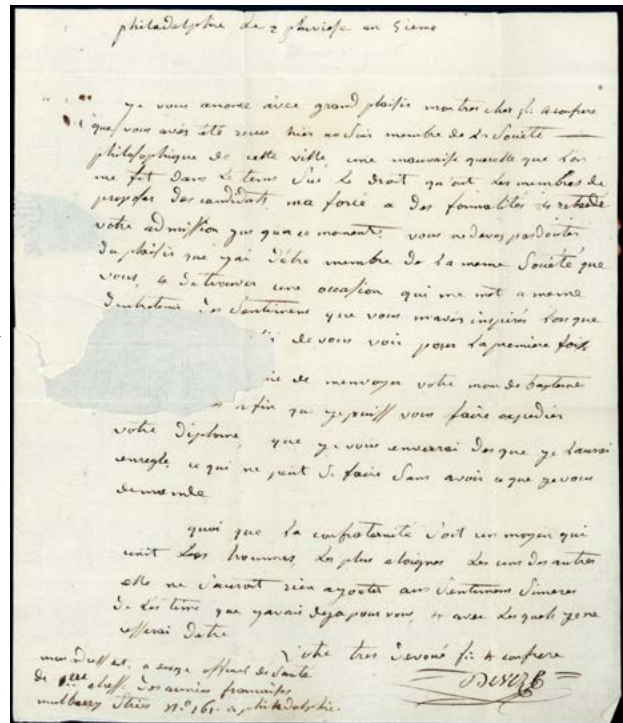 philadelphie Le 2 pluviose an 5ieme
je vous anonce avec grand plaisir mon tres cher f∴ & confrere
que vous avés été recu hier au Soir membre de La Societé
philosophique de cette ville, une mauvaise querelle que L'on
me fit dans Le tems Sur Le droit qu'ont Les membres de
proposer des candidats, ma forcé a des formalités & retardé
votre admission jus qua ce moment. vous ne devés pas douter
du plaisir que j'ai d'étre membre de La meme Societé que
vous, & de trouver une occasion qui me met a meme
d'entretenir Les Sentimens que vous m'avés inspirés Lorsque
de vous voir pour La premiere fois
de menvoyer votre nom de bapteme
afin que je puisse vous faire expedier
votre diplome, que je vous enverrai des que je L'aurai
enregle, ce qui ne peut Se faire Sans avoir ce que je vous
demande
quoi que La confraternité Soit un moyen qui
unit Les hommes Les plus eloignés Les uns des autres
elle ne Sauroit rien ajouter aux Sentimens Sinceres
de Les time que j'avais deja pour vous, & avec Les quels je ne
cesserai detre
Votre tres devoué f∴ & confrere
Deveze
mon adresse est, a deveze officier de Santé
de 1ere classe des armées francaises
mulberry Street N.° 161. a philadelphie.